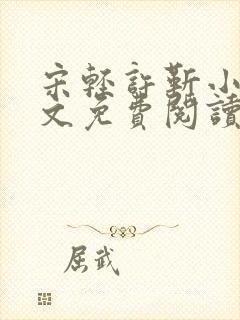 宋輕許靳小
文免費閱讀
屈武